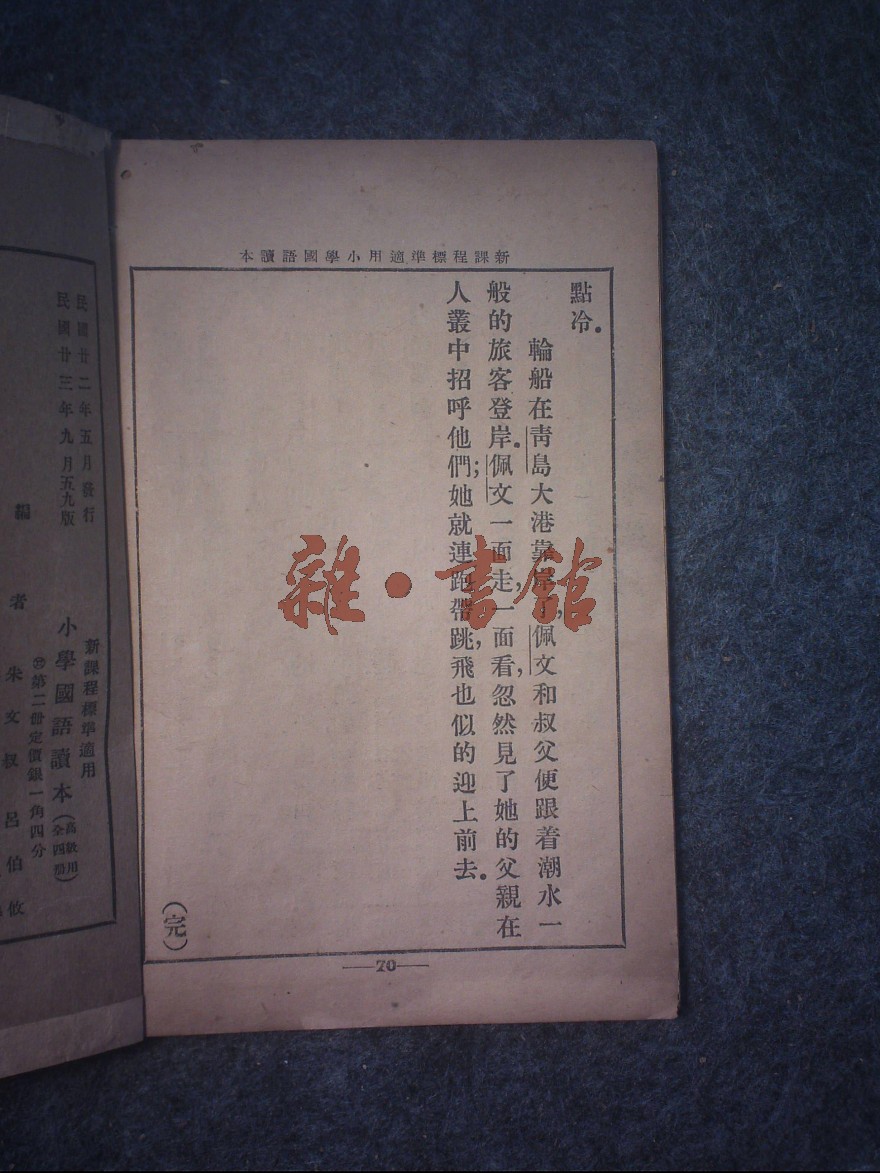 新課程標準適用小學國語讀本
點冷.
輪船在青島大港靠岸了,佩文和叔父便跟着潮水一
般的旅客登岸.佩文一面走,一面看,忽然見了她的父親在
人叢中招呼他們;她就連跑帶跳,飛也似的迎上前去.
(完)
—70—
雜·書館
新課程標準適用
小學國語讀本(高級用全四册)
第二冊定價銀一角四分
民國廿二年五月發行
民國廿三年九月五九版
編者 朱文叔 呂伯攸